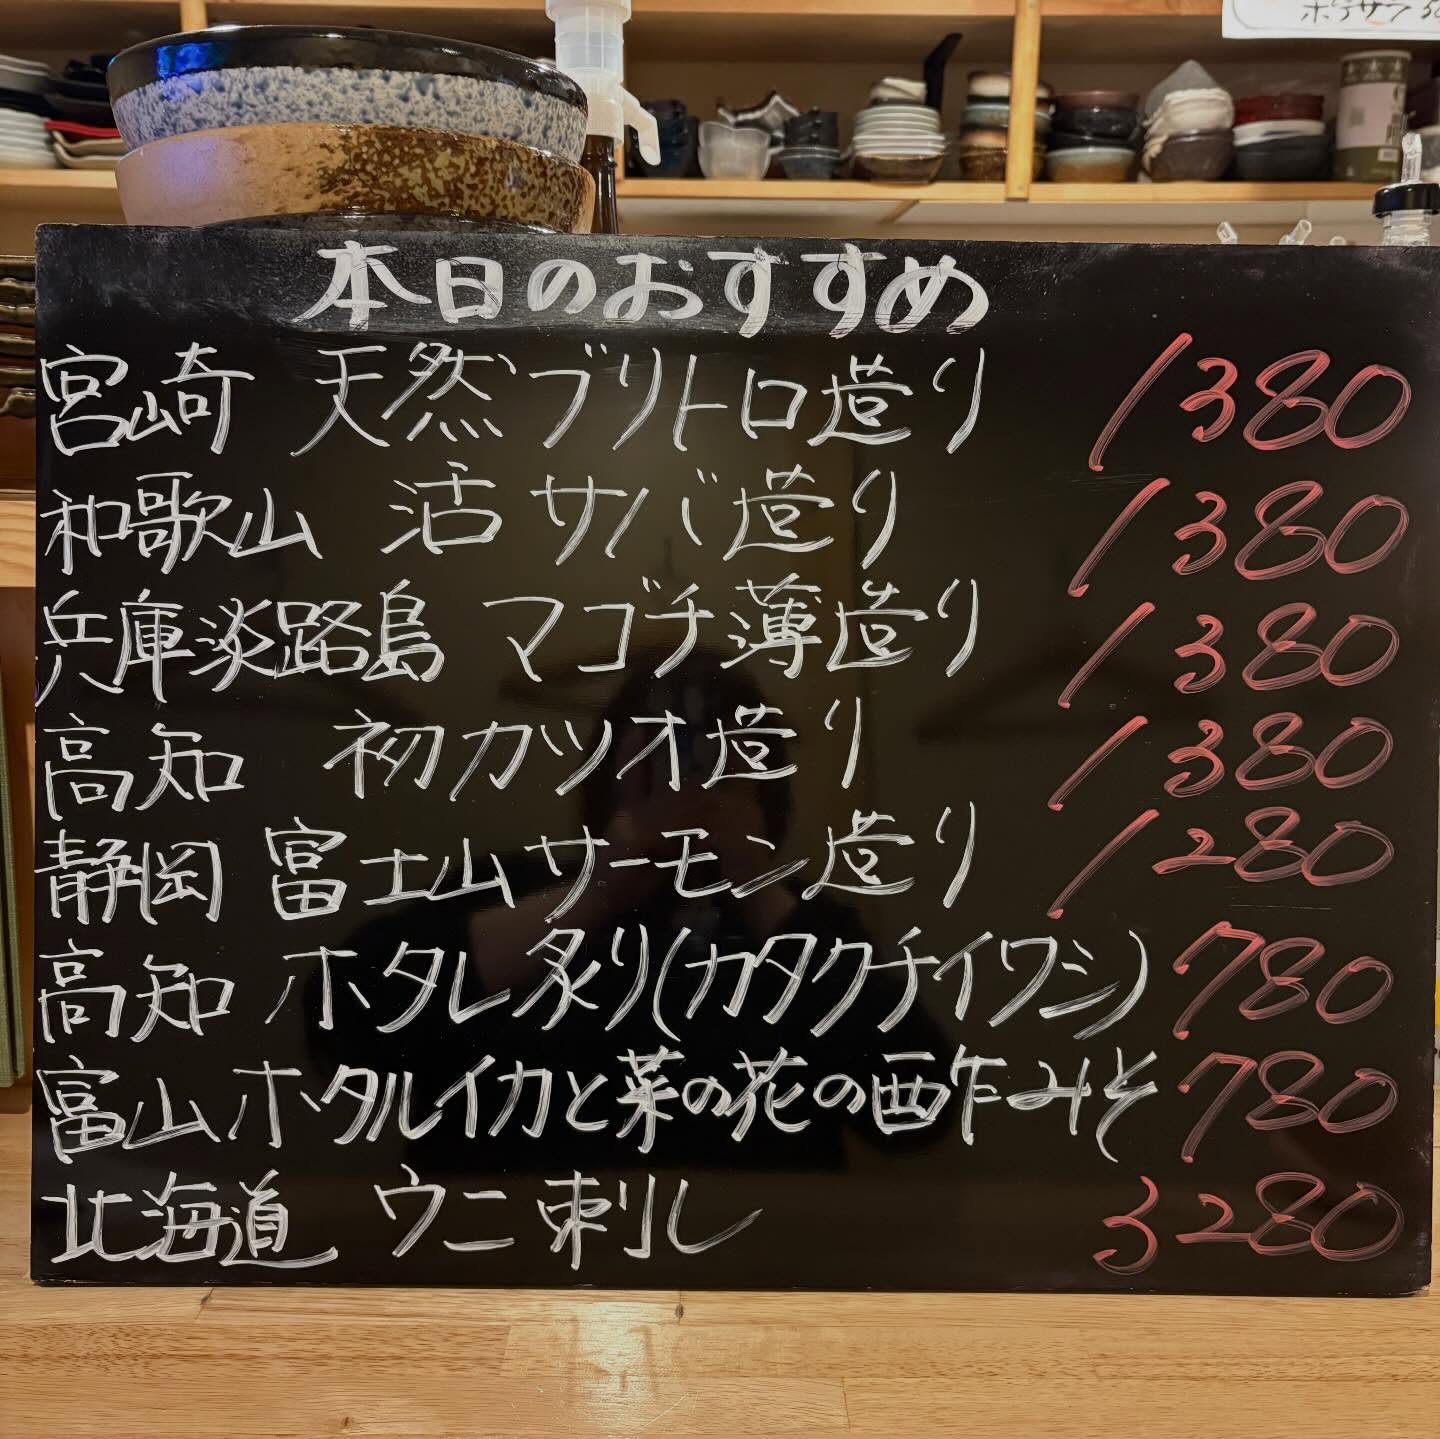 ポテサラ
本日のおすすめ
宮崎 天然ブリトロ造り 1380
和歌山 活サバ造り 1380
兵庫淡路島 マゴチ薄造り 1380
高知 初カツオ造り 1380
静岡 富士山サーモン造り 1280
高知 ホタレ炙り(カタクチイワシ) 780
富山ホタルイカと菜の花の酢みそ 780
北海道 ウニ刺し 3280